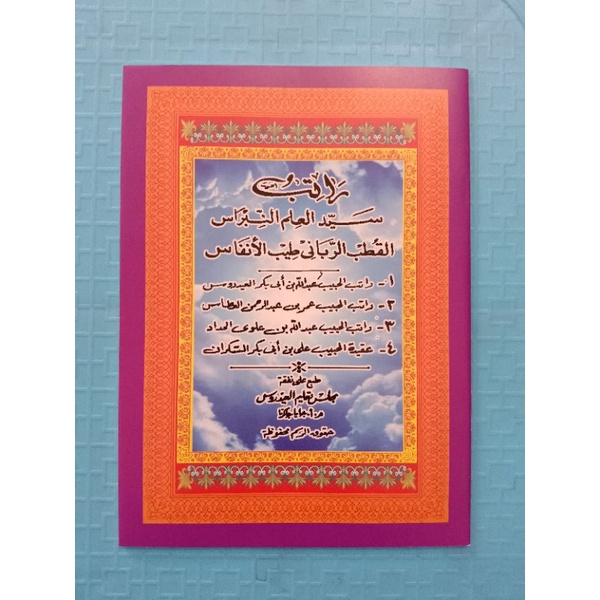 راتب
سيّد العلم النبراس
القطب الربّاني طيب الأنفاس
١- راتب الحبيب عبدالله بن أبي بكر العيدروس
٢- راتب الحبيب عمر بن عبدالرحمن العطاس
٣- راتب الحبيب عبدالله بن علوى الحداد
٤- عقيدة الحبيب على بن أبي بكر السكران
طبع على نفقة
مجلس تعليم العيدروس
حقوق الرسم محفوظة